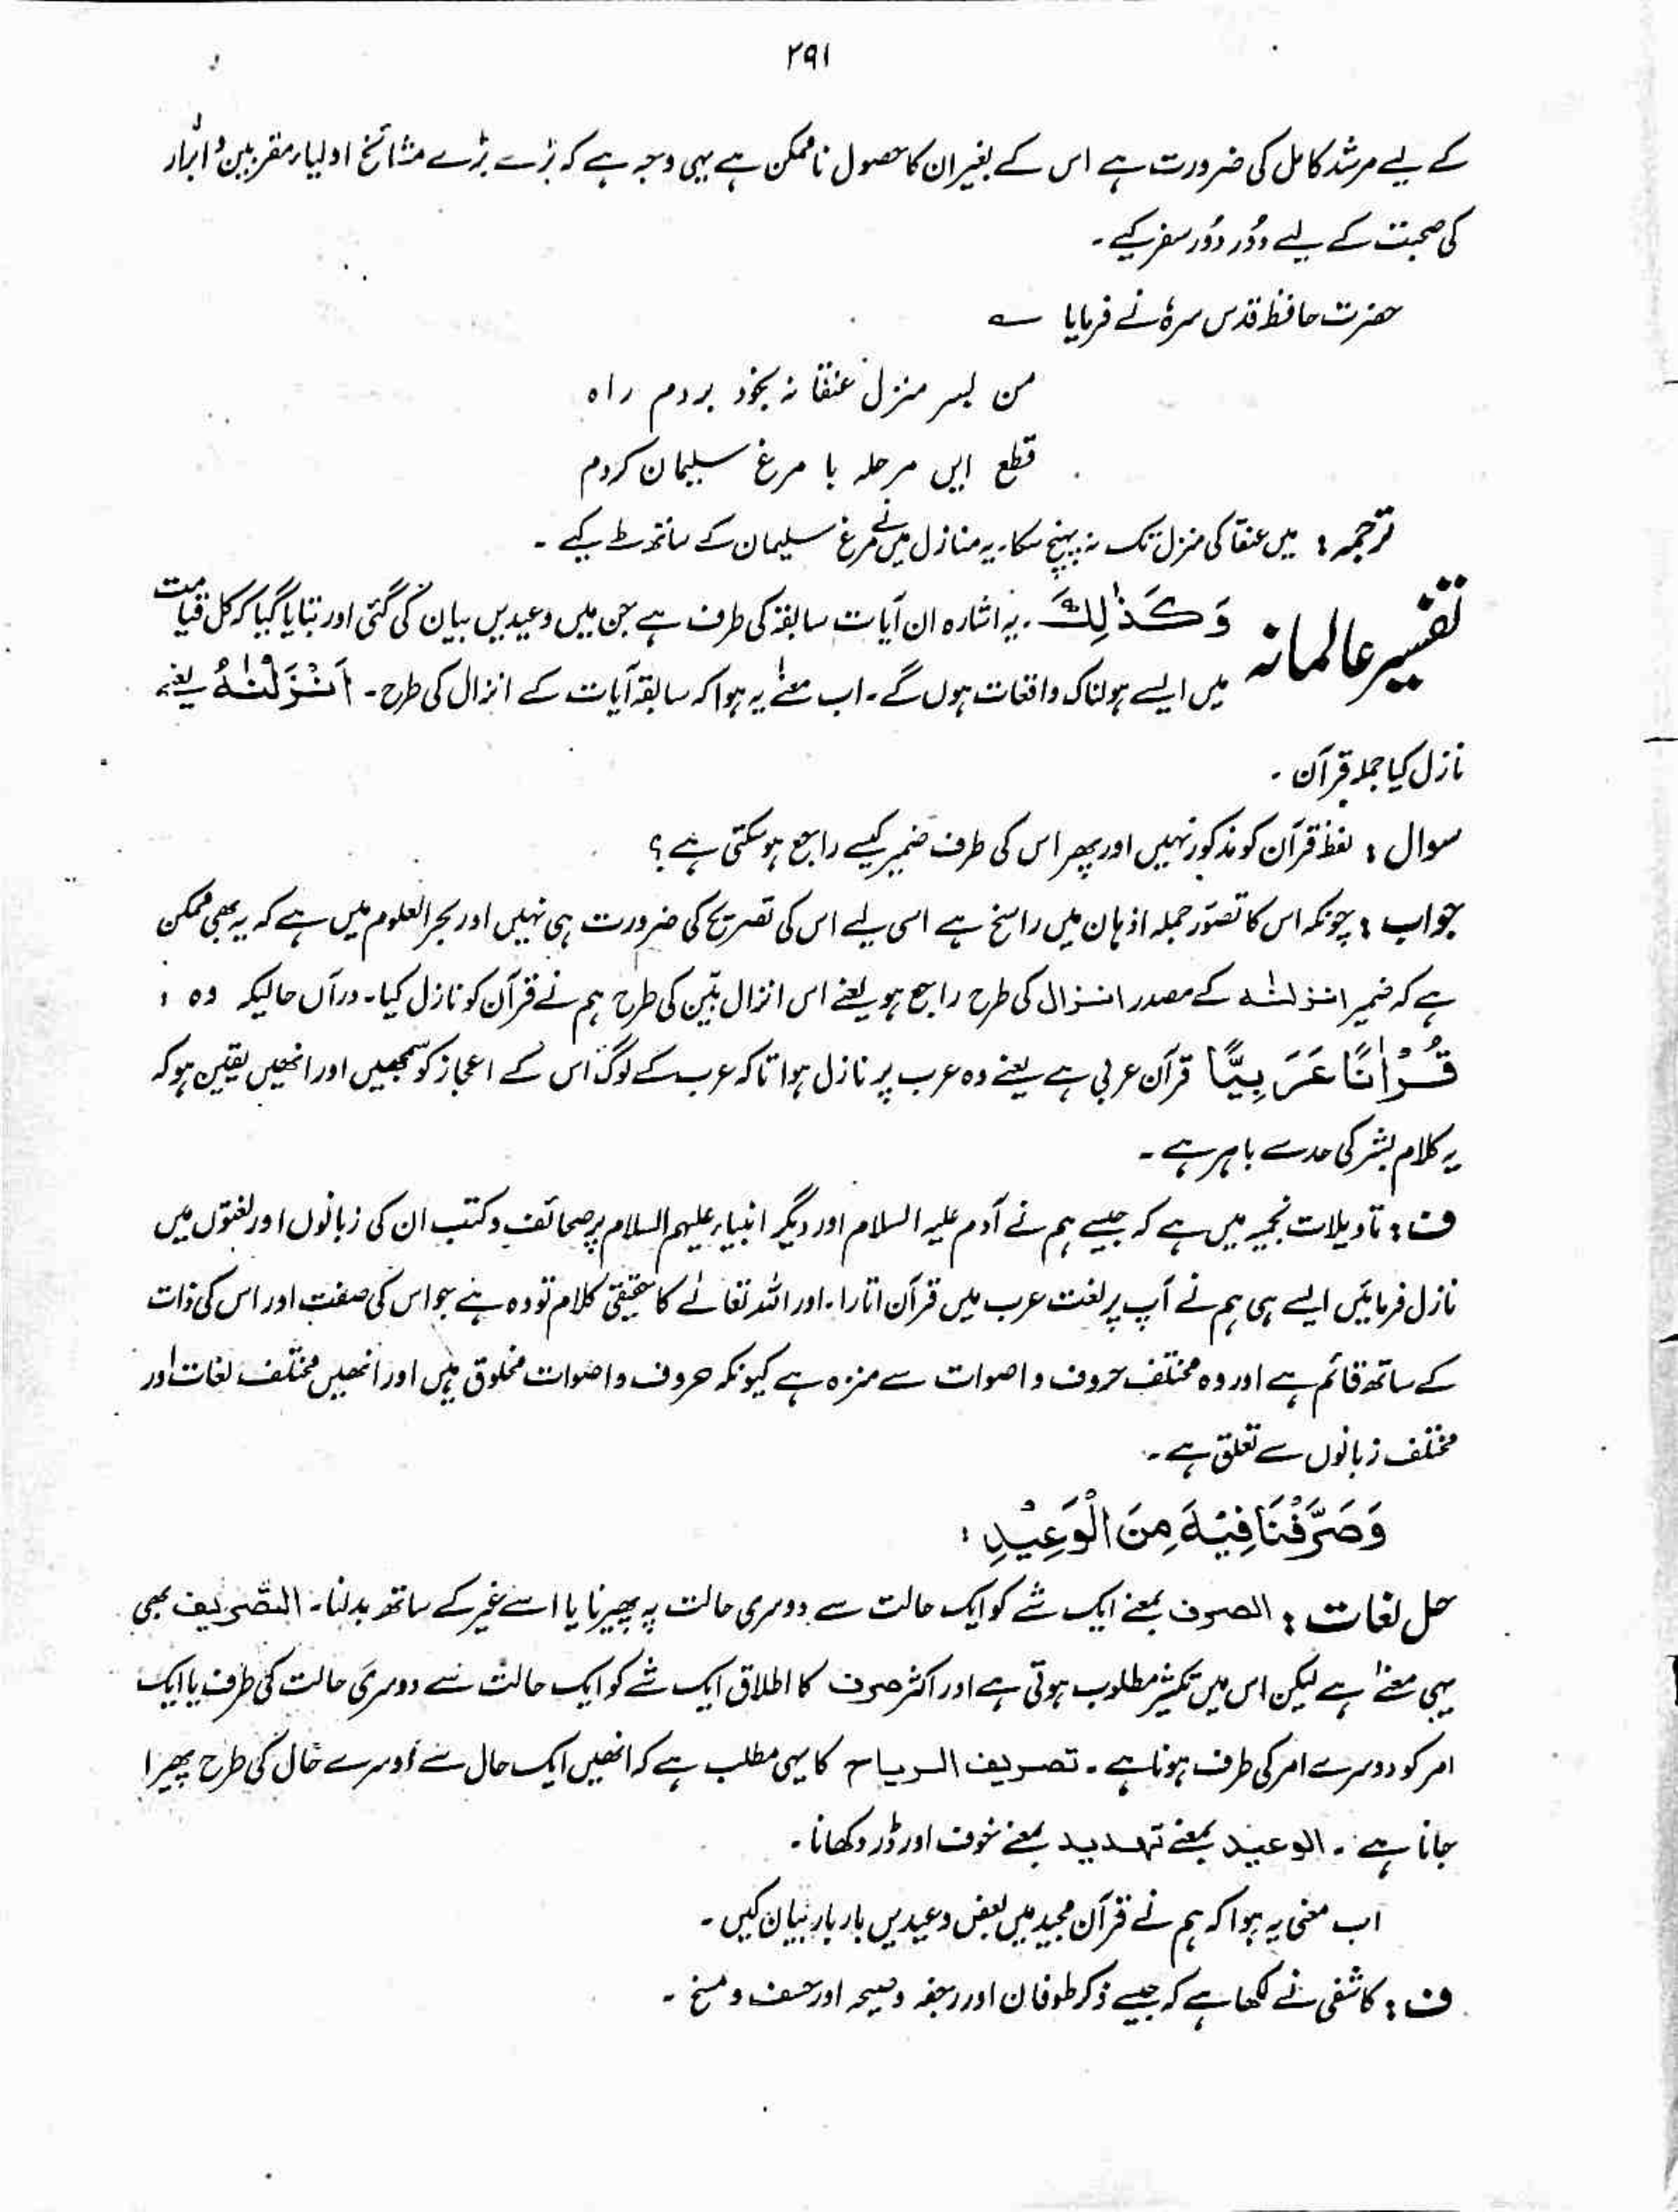 ۲۹۱
کے لیے مرشد کامل کی ضرورت ہے اس کے بغیر ان کا حصول ناممکن ہے یہی وجہ ہے کہ بڑے بڑے مشائخ اولیاء مقربین و ابرار
کی صحبت کے لیے دُور دُور سفر کیے ۔
حضرت حافظ قدس سرہٗ نے فرمایا ؎
من بسر منزل عنقا نہ بخود بردم راہ
قطع ایں مرحلہ با مرغ سلیمان کردم
ترجمہ : میں عنقا کی منزل تک نہ پہنچ سکا۔ یہ منازل میں نے مرغ سلیمان کے ساتھ طے کیے ۔
تفسیر عالمانہ وَكَذٰلِكَ ۔ یہ اشارہ ان آیات سابقہ کی طرف ہے جن میں وعیدیں بیان کی گئی اور بتایا گیا کہ کل قیامت
میں ایسے ہولناک واقعات ہوں گے۔ اب معنےٰ یہ ہوا کہ سابقہ آیات کے انزال کی طرح ۔ اَنْزَلْنٰهُ یعنے
نازل کیا جملہ قرآن ۔
سوال : لفظ قرآن کو مذکور نہیں اور پھر اس کی طرف ضمیر کیسے راجع ہو سکتی ہے ؟
جواب : چونکہ اس کا تصوّر جملہ اذہان میں راسخ ہے اسی لیے اس کی تصریح کی ضرورت ہی نہیں اور بحر العلوم میں ہے کہ یہ بھی ممکن
ہے کہ ضمیر انزلنٰہ کے مصدر انزال کی طرح راجع ہو یعنے اس انزال بیّن کی طرح ہم نے قرآن کو نازل کیا۔ درآں حالیکہ وہ :
قُرْاٰنًا عَرَبِيًّا قرآن عربی ہے یعنے وہ عرب پر نازل ہوا تاکہ عرب کے لوگ اس کے اعجاز کو سمجھیں اور انھیں یقین ہو کہ
یہ کلام بشر کی حد سے باہر ہے ۔
ف : تاویلات نجمیہ میں ہے کہ جیسے ہم نے آدم علیہ السلام اور دیگر انبیاء علیہم السلام پر صحائف و کتب ان کی زبانوں اور لغتوں میں
نازل فرمائیں ایسے ہی ہم نے آپ پر لغت عرب میں قرآن اتارا۔ اور اللہ تعالےٰ کا حقیقی کلام تو وہ ہے جو اس کی صفت اور اس کی ذات
کے ساتھ قائم ہے اور وہ مختلف حروف و اصوات سے منزہ ہے کیونکہ حروف و اصوات مخلوق ہیں اور انھیں مختلف لغات اور
مختلف زبانوں سے تعلق ہے ۔
وَصَرَّفْنَا فِيْهِ مِنَ الْوَعِيْدِ :
حل لغات : الصرف بمعنے ایک شے کو ایک حالت سے دوسری حالت پہ پھیرنا یا اسے غیر کے ساتھ بدلنا۔ التصریف بھی
یہی معنےٰ ہے لیکن اس میں تکثیر مطلوب ہوتی ہے اور اکثر صرف کا اطلاق ایک شے کو ایک حالت سے دوسری حالت کی طرف یا ایک
امر کو دوسرے امر کی طرف ہوتا ہے ۔ تصریف الریاح کا یہی مطلب ہے کہ انھیں ایک حال سے دوسرے حال کی طرح پھیرا
جاتا ہے ۔ الوعید بمعنے تہدید بمعنے خوف اور ڈر دکھانا ۔
اب معنی یہ ہوا کہ ہم نے قرآن مجید میں بعض وعیدیں بار بار بیان کیں ۔
ف : کاشفی نے لکھا ہے کہ جیسے ذکر طوفان اور رجفہ و صیحہ اور خسف و مسخ ۔